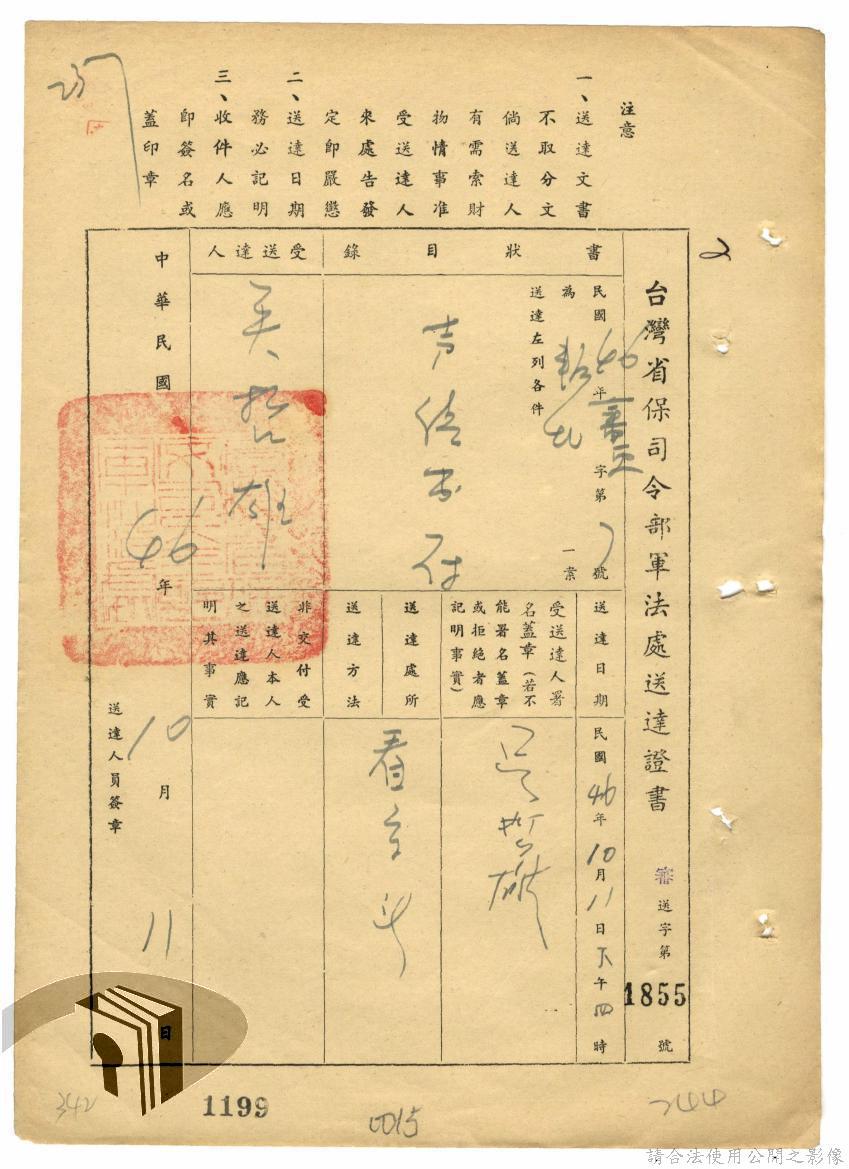 注意
一、送達文書
不取分文
倘送達人
有需索財
物情事准
受送達人
來處告發
定即嚴懲
二、送達日期
務必記明
三、收件人應
即簽名或
蓋印章
2
台灣省保司令部軍法處送達證書 審送字第1855號
書狀目錄
民國46年審三字第 號
為 叛亂 一案
送達左列各件
受送達人
吳哲雄
送達日期
民國46年10月11日下午四時
受送達人署
名蓋章(若不
能署名蓋章
或拒絕者應
記明事實)
吳哲雄
送達處所
送達方法
看守所
非交付受
送達人本人
之送達應記
明其事實
中華民國46年10月11日
送達人員簽章
342
1199
0015
244
請合法使用公開之影像